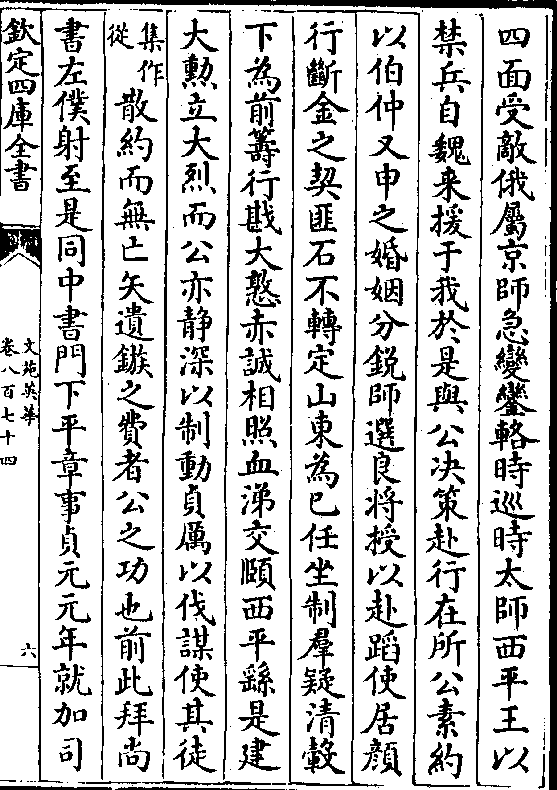 四面受敵俄屬京師急變鑾輅時巡時太師西平王以
禁兵自魏来援于我於是與公决策赴行在所公素約
以伯仲又申之婚姻分銳師選良将授以赴蹈使居顔
行斷金之契匪石不轉定山東為已任坐制羣疑清轂
下為前籌行戡大憝赤誠相照血涕交頤西平繇是建
大勲立大烈而公亦静深以制動貞厲以伐謀使其徒
集作
從
散約而無亡矢遺鏃之費者公之功也前此拜尚
書左僕射至是同中書門下平章事貞元元年就加司
欽定四庫全書
文苑英華
卷八百七十四
六